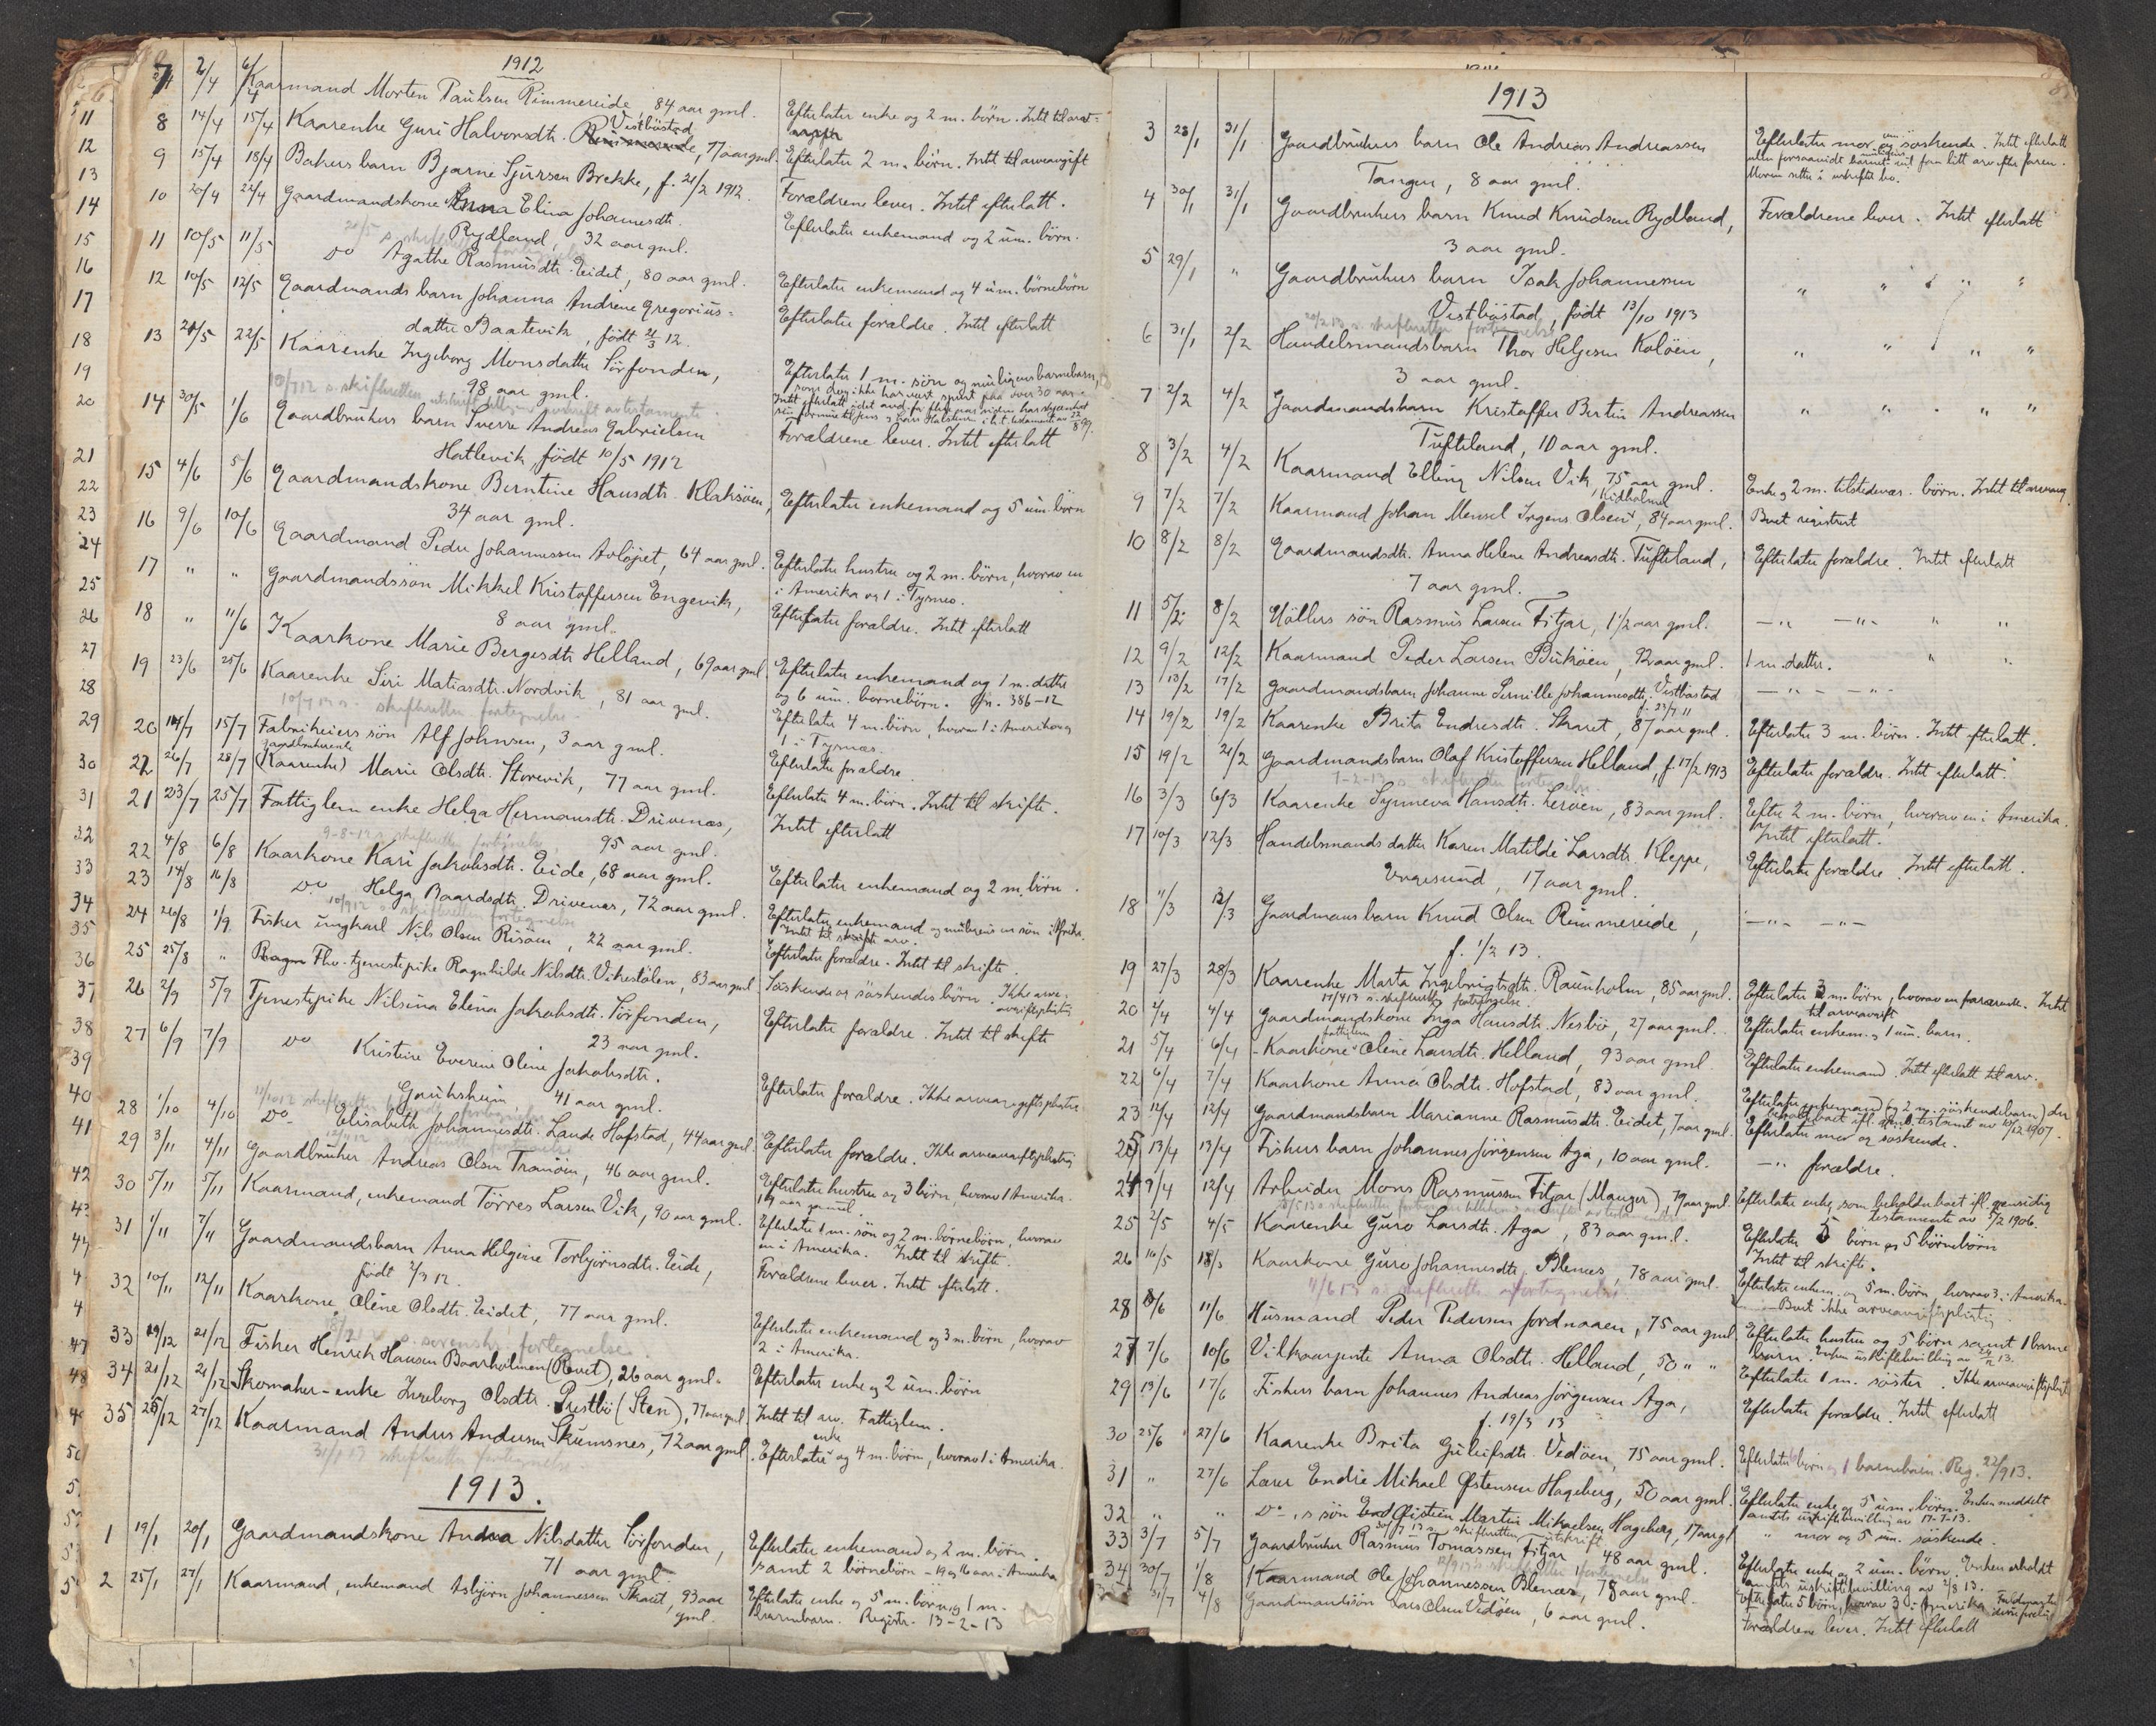 1912
7 2/4 6/4 Kaarmand Morten Paulsen Rimmereide, 84 aar gml. Efterlater enke og 2 m. börn. Intet til
8 14/4 15/4 Kaarenke Guri Halvorsdtr. Vestböstad, 77 aar gml. Efterlater 2 m. börn. Intet til arveavgift
9 15/4 18/4 Bakers barn Bjarne Sjursen Brekke, f. 21/2 1912. Forældrene lever. Intet efterlatt.
10 20/4 22/4 Gaardmandskone Anna Elina Johannesdt. Efterlater enkemand og 2 um. börn.
Rydland, 32 aar gml.
11 10/5 11/5 Do Agathe Rasmusdtr. Eidet, 80 aar gml. Efterlater enkemand og 4 um. börnebörn
12 10/5 12/5 Gaardmands barn Johanna Andrene Gregorius= Efterlater forældre. Intet efterlatt
datter Baatevik, födt 2/3 12.
13 21/5 22/5 Kaarenke Ingeborg Monsdatter Sörfonden, Efterlater 1 m. sön og muligens barnebarn,
98 aar gml. som dog ikke har vært spurt paa over 30 aar.
14 30/5 1/6 Gaardbrukers barn Sverre Andreas Gabrielsen Forældrene lever. Intet efterlatt
Hatlevik, födt 10/5 1912
15 4/6 5/6 Gaardmandskone Berntine Hansdtr. Klaksöien, Efterlater enkemand og 5 um. börn
34 aar gml.
16 9/6 10/6 Gaardmand Peder Johannessen Avlöpet, 64 aar gml. Efterlater hustru og 2 m. börn, hvorav en
i Amerika og 1 i Tysnes.
17 " " Gaardmandssön Mikkel Kristoffersen Engevik, Efterlater forældre. Intet efterlatt
8 aar gml.
18 " 11/6 Kaarkone Marie Bergesdtr Helland, 69 aar gml. Efterlater enkemand og 1 m. datter
og 6 um. barnebörn. Jn. 386-12
19 23/6 25/6 Kaarenke Siri Matiasdtr. Nordvik, 81 aar gml. Efterlater 4 m. börn, hvorav 1 i Amerika og
1 i Tysnæs.
20 14/7 15/7 Fabrikeiers sön Alf Johnsen, 3 aar gml. Efterlater forældre.
22 26/7 28/7 (Kaarenke) Marie Olsdtr. Storevik, 77 aar gml. Efterlater 4 m. börn. Intet til skifte.
21 23/7 25/7 Fattiglem enke Helga Hermansdtr. Drivenæs, Intet efterlatt
95 aar gml.
22 4/8 6/8 Kaarkone Kari Jakobsdtr. Eide, 68 aar gml. Efterlater enkemand og 2 m. börn.
23 14/8 16/8 Do Helga Baardsdtr. Drivenes, 72 aar gml. Efterlater enkemand og
24 26/8 1/9 Fisker ungkarl Nils Olsen Risöen, 22 aar gml. Efterlater forældre. Intet til skifte.
25 25/8 " Fhv. tjenestepike Ragnhilde Nilsdtr. Vikestölen, 83 aar gml. Söskende og söskendes börn. Ikke arve-
avgiftspligtig
26 2/9 5/9 Tjenestepike Nilsina Elina Jakobsdtr. Sörfonden, Efterlater forældre. Intet til skifte
23 aar gml.
27 6/9 7/9 Do Kristine Everine Oline Jakobsdtr. Efterlater forældre. Ikke arveavgiftspligtig
Gauksheim 41 aar gml.
28 1/10 4/10 Do Elisabeth Johannesdtr. Lande Hofstad, 44 aar gml. Efterlater forældre. Ikke arveavgiftspligtig
29 3/11 4/11 Gaardbruker Andreas Olsen Tranöien, 46 aar gml. Efterlater hustru og 3 börn, hvorav 1 Amerika.
30 5/11 5/11 Kaarmand, enkemand Törres Larsen Vik, 90 aar gml. Efterlater 1 m. sön og 2 m. börnebörn, hvorav
en i Amerika. Intet til skifte.
31 1/11 7/11 Gaardmandsbarn Anna Helgine Torbjörnsdtr. Eide, Forældrene lever. Intet efterlatt.
födt 2/3 12.
32 10/11 12/11 Kaarkone Oline Olsdtr. Eidet, 77 aar gml. Efterlater enkemand og 3 m. börn, hvorav
2 i Amerika.
33 19/12 21/12 Fisker Henrik Hansen Baarholmen (Rovet), 26 aar gml. Efterlater enke og 2 um. börn
34 21/12 21/12 Skomaker-enke Ingeborg Olsdtr. Prestbö (Sten), 77 aar gml. Intet til arv. Fattiglem.
35 25/12 27/12 Kaarmand Anders Andersen Skumsnes, 72 aar gml. Efterlater enke og 4 m. börn, hvorav 1 i Amerika.
1913.
1 19/1 20/1 Gaardmandskone Andrea Nilsdatter Sörfonden, Efterlater enkemand og 2 m. börn.
71 aar gml. samt 2 börnebörn - 19 og 16 aar i Amerika
2 25/1 27/1 Kaarmand, enkemand Asbjörn Johannessen Skaret, 93 aar gml. Efterlater enke og 5 m. börn og 1 m.
barnebarn. Registr. 13-2-13
1913
3 28/1 31/1 Gaardbrukers barn Ole Andreas Andreassen Efterlater mor og um. söskende. Intet efterlatt
Tangen, 8 aar gml. Moren sitter i uskiftet bo.
4 30/1 31/1 Gaardbrukers barn Knud Knudsen Rydland, Forældrene lever. Intet efterlatt
3 aar gml.
5 29/1 " Gaardbrukers barn Isak Johannessen " " " "
Vestböstad, födt 13/10 1913
6 31/1 2/2 Handelsmandsbarn Thor Helgesen Kolöen, " " " "
3 aar gml.
7 2/2 4/2 Gaardmandsbarn Kristoffer Bertin Andreassen " " " "
Tufteland, 10 aar gml.
8 3/2 4/2 Kaarmand Elling Nilsen Vik, 75 aar gml. Enke og 2 m. tilstedevær. börn. Intet til arveavg.
9 7/2 7/2 Kaarmand Johan Mensel Irgens Olsen Kidholmen, 84 aar gml. Boet registrert
10 8/2 8/2 Gaardmandsdtr. Anna Helene Andreasdtr. Tufteland, Efterlater forældre. Intet efterlatt
7 aar gml.
11 5/2 8/2 Möllers sön Rasmus Larsen Fitjar, 1 1/2 aar gml. —"— —"— " "
12 9/2 12/2 Kaarmand Peder Larsen Buköen, 92 aar gml. 1 m. datter. " "
13 13/2 17/2 Gaardmandsbarn Johanne Pernille Johannesdtr. Vestböstad —"— —"—
14 19/2 19/2 Kaarenke Brita Endresdtr. Skaret, 87 aar gml. Efterlater 3 m. börn. Intet efterlatt.
15 19/2 21/2 Gaardmandsbarn Olaf Kristoffersen Helland, f. 17/2 1913 Efterlater forældre. Intet efterlatt.
16 3/3 6/3 Kaarenke Synneva Hansdtr. Leröen, 83 aar gml. Efter 2 m. börn, hvorav en i Amerika.
Intet efterlatt.
17 10/3 12/3 Handelsmands datter Karen Matilde Larsdtr. Kleppe, Efterlater forældre. Intet efterlatt.
Engesund, 17 aar gml.
18 11/3 12/3 Gaardmans barn Knud Olsen Rimmereide, —"— —"—
f. 1/2 13.
19 27/3 28/3 Kaarenke Marta Ingebrigtsdtr. Raunholm, 85 aar gml. Efterlater 3 m. börn, hvorav en fraværende. Intet
til arveavgift
20 2/4 4/4 Gaardmandskone Inga Hansdtr. Nesbö, 27 aar gml. Efterlater enkem. og 1 um. barn.
21 5/4 6/4 Kaarkone Oline Larsdtr. Helland, 93 aar gml. Efterlater enkemand. Intet efterlatt til arv.
22 6/4 7/4 Kaarkone Anna Olsdtr. Hofstad, 83 aar gml. Efterlater enkemand (og 2 m. söskendebarn) der
23 12/4 12/4 Gaardmandsbarn Marianne Rasmusdtr. Eidet, 7 aar gml. Efterlater mor og söskende.
25 13/4 13/4 Fiskers barn Johannes Jörgensen Aga, 10 aar gml. —"— forældre.
24 9/4 12/4 Arbeider Mons Rasmussen Fitjar (Mauger), 79 aar gml. Efterlater enke som beholder boet ifl. gjensidig
testamente av 5/2 1906.
25 2/5 4/5 Kaarenke Guro Larsdtr. Aga, 83 aar gml. Efterlater 5 börn og 5 börnebörn
Intet til skifte.
26 16/5 18/5 Kaarkone Guro Johannesdtr. Blenes, 78 aar gml. Efterlater enkem. og 5 m. börn, hvorav 3 i Amerika.
Boet ikke arveavgiftspligtig
28 8/6 11/6 Husmand Peder Pedersen Jordnaaen, 75 aar gml. Efterlater hustru og 5 börn samt 1 barne
barn. Enken uskiftebevilling av
27 7/6 10/6 Vilkaarjente Anna Olsdtr. Helland, 50 " " Efterlater 1 m. söster. Ikke arveavgiftspligt.
29 13/6 17/6 Fiskers barn Johannes Andreas Jörgensen Aga, Efterlater forældre. Intet efterlatt
f. 19/3 13
30 25/6 27/6 Kaarenke Brita Guleifsdtr. Vedöen, 75 aar gml. Efterlater börn og 1 barnebarn. Reg. 22/9 13.
31 " 27/6 Lærer Endre Mikael Östensen Hageberg, 50 aar gml. Efterlater enke og 5 um. börn. Enken meddelt
amtets uskiftebevilling av 17-7-13.
32 " " Do, s sön Öistein Martin Mikaelsen Hageberg, 17 aar gl. " mor og 5 um. söskende.
33 3/7 5/7 Gaardbruker Rasmus Tomassen Fitjar 48 aar gml. Efterlater enke og 2 um. börn. Enken erholdt
amtets uskiftebevilling av 2/8 13.
34 30/7 1/8 Kaarmand Ole Johannessen Blenes, 78 aar gml. Efterlater 5 börn, hvorav 3 i Amerika.
31/7 4/8 Gaardmandssön Lars Olsen Vedöen, 6 aar gml. Forældrene lever. Intet efterlatt